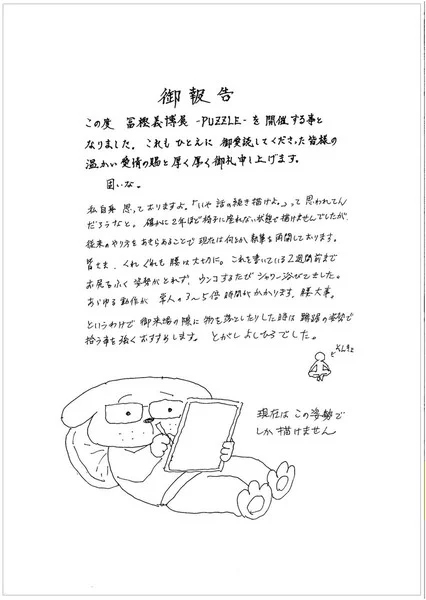 御報告
この度 冨樫義博展 -PUZZLE- を 開催する事と
なりました。これも ひとえに 御愛読してくださった皆様の
温かい愛情の賜と厚く厚く御礼申し上げます。
固いな。
私自身 思っておりますよ。「いや 話の続き描けよ。」って 思われてん
だろうなと。 確かに2年ほど椅子に座れない状態で描けませんでしたが、
従来のやり方をあきらめることで 現在は何とか執筆を再開しております。
皆さま、くれぐれも 腰は大切に。これを書いている2週間前まで
お尻をふく姿勢がとれず、ウンコするたび シャワー浴びてました。
あらゆる動作が 常人の3〜5倍 時間がかかります。 腰大事。
というわけで 御来場の際に 物を落としたりした時は 蹲踞の姿勢で
拾う事を強くおすすめします。 とがし よしひろでした。
そんきょ
現在は この姿勢で
しか 描けません